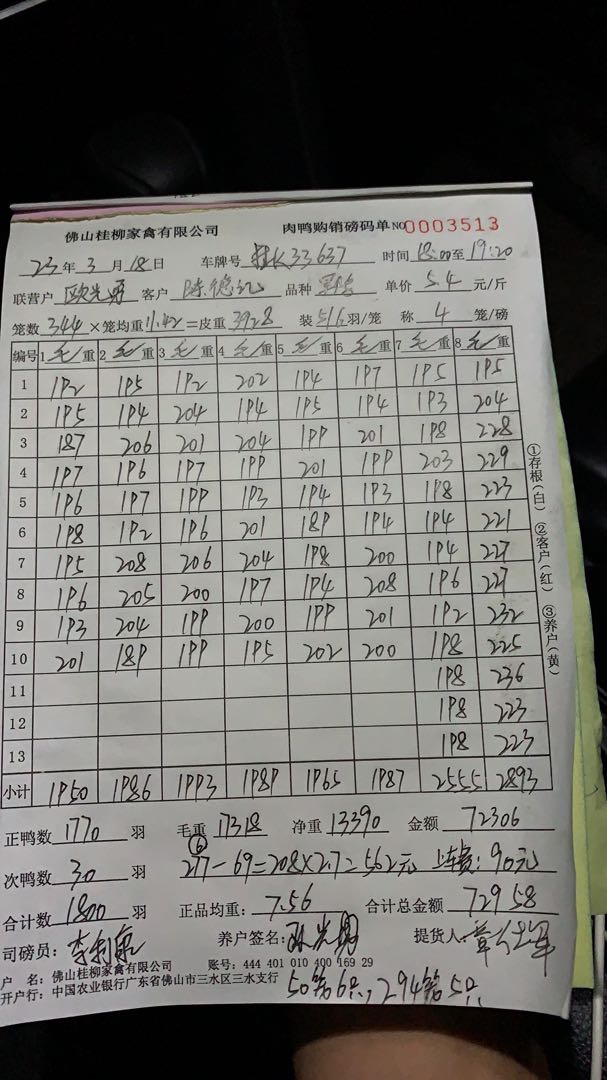 佛山桂柳家禽有限公司 肉鸭购销磅码单 NO 0003513
23年3月18日 车牌号 桂K33637 时间 18:00至19:20
联营户 客户 陈德 品种 单价 5.4 元/斤
笼数 344×笼均重 11.42=皮重 3928 装 5/6羽/笼 称 4 笼/磅
编号 1毛/重 2毛/重 3毛/重 4毛/重 5毛/重 6毛/重 7毛/重 8毛/重
1 192 195 192 202 194 197 195 195
2 195 194 204 194 195 194 193 204
3 187 206 201 204 199 201 198 228
4 197 196 197 199 201 199 203 229
5 196 197 199 193 194 193 198 223
6 198 192 196 201 189 194 194 221
7 195 208 206 204 198 200 194 227
8 196 205 200 197 194 208 196 227
9 193 204 199 200 199 201 192 232
10 201 189 199 195 202 200 198 225
11 198 236
12 198 223
13 198 223
小计 1950 1986 1993 1989 1965 1987 2555 2893
①存根(白) ②客户(红) ③养户(黄)
正鸭数 1770 羽 毛重 17318 净重 13390 金额 72306
次鸭数 30 羽 277-69=208×2.7=562元 上车费:90元
合计数 1800 羽 正品均重: 7.56 合计总金额 72958
司磅员: 养户签名: 提货人:
户 名: 佛山桂柳家禽有限公司 账号: 444 401 010 400 169 29
开户行: 中国农业银行广东省佛山市三水区三水支行
50笼6只,294笼5只